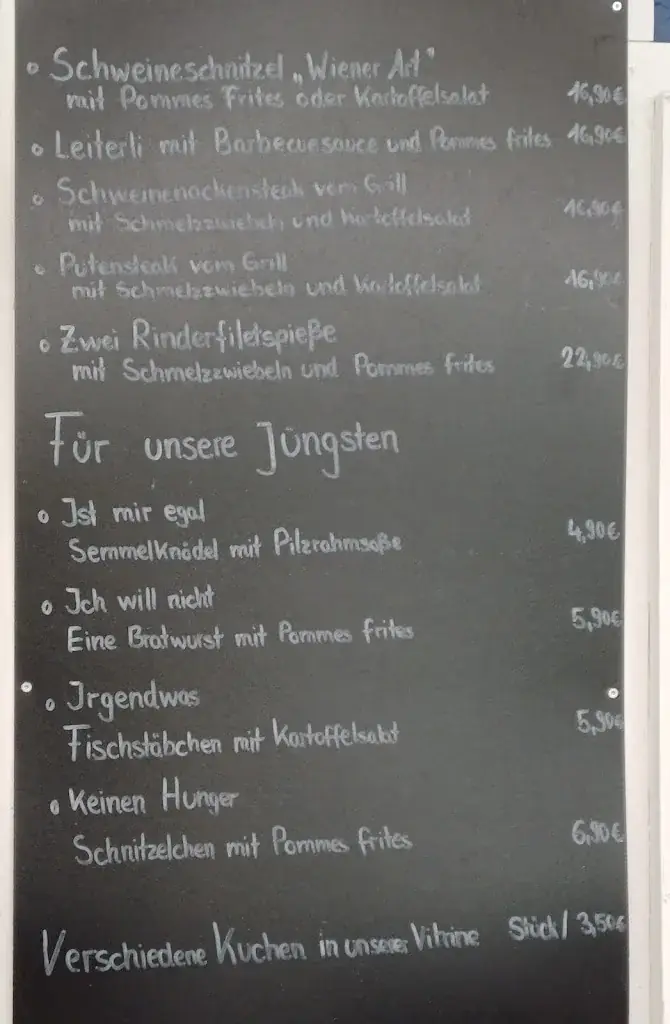 Schweineschnitzel „Wiener Art"
mit Pommes Frites oder Kartoffelsalat 16,90€
Leiterli mit Barbecuesauce und Pommes frites 16,90€
Schweinenackensteak vom Grill
mit Schmelzzwiebeln und Kartoffelsalat 16,90€
Putensteak vom Grill
mit Schmelzzwiebeln und Kartoffelsalat 16,90€
Zwei Rinderfiletspieße
mit Schmelzzwiebeln und Pommes frites 22,90€
Für unsere Jüngsten
Ist mir egal
Semmelknödel mit Pilzrahmsoße 4,90€
Ich will nicht
Eine Bratwurst mit Pommes frites 5,90€
Irgendwas
Fischstäbchen mit Kartoffelsalat 5,90€
Keinen Hunger
Schnitzelchen mit Pommes frites 6,90€
Verschiedene Kuchen in unserer Vitrine Stück/ 3,50€